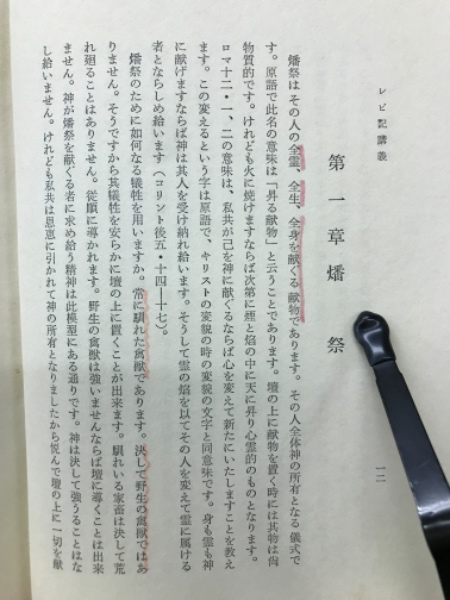 レビ記講義
一一
第一章 燔祭
燔祭はその人の全霊、全生、全身を献ぐる献物であります。その人全体神の所有となる儀式で
す。原語で此名の意味は「昇る献物」と云うことであります。壇の上に献物を置く時には其物は尚
物質的です。けれども火に焼けますならば次第に煙と焰の中に天に昇り心霊的のものとなります。
ロマ十二・一、二の意味は、私共が己を神に献ぐるならば心を変えて新たにいたしますことを教え
ます。この変えるという字は原語で、キリストの変貌の時の変貌の文字と同意味です。身も霊も神
に献げますならば神は其人を受け納れ給います。そうして霊の焰を以てその人を変えて霊に属ける
者とならしめ給います（コリント後五・十四―十七）。
燔祭のために如何なる犠牲を用いますか。常に馴れた禽獣であります。決して野生の禽獣ではあ
りません。そうですから其犠牲を安らかに壇の上に置くことが出来ます。馴れいる家畜は決して荒
れ廻ることはありません。従順に導かれます。野生の禽獣は強いませんならば壇に導くことは出来
ません。神が燔祭を献ぐる者に求め給う精神は此模型にある通りです。神は決して強うることはな
し給いません。けれども私共は恩恵に引かれて神の所有となりましたから悦んで壇の上に一切を献